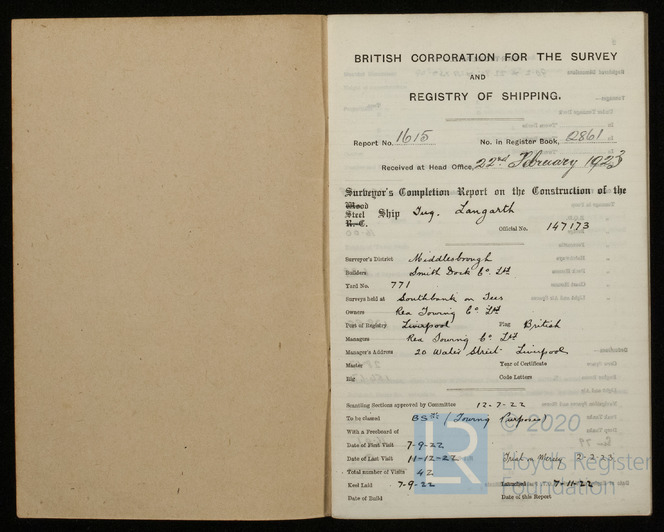 BRITISH CORPORATION FOR THE SURVEY
AND
REGISTRY OF SHIPPING.
Report No. 1615 No. in Register Book, 2861
Received at Head Office, 22nd February 1923
Surveyor's Completion Report on the Construction of the
Wood
Steel Ship Tug. Langarth
R.-C.
Official No. 147173
Surveyor's District Middlesbrough
Builders Smith Dock Co. Ltd
Yard No. 771
Surveys held at Southbank on Tees
Owners Rea Towing Co. Ltd
Port of Registry Liverpool Flag British
Managers Rea Towing Co. Ltd
Manager's Address 20 Water Street Liverpool
Master Year of Certificate
Rig Code Letters
Scantling Sections approved by Committee 12-7-22
To be classed BS* (Towing Purposes)
With a Freeboard of
Date of First Visit 7-9-22
Date of Last Visit 11-12-22 Trial on Mersey 2-2-23
Total number of Visits 42
Keel Laid 7-9-22 Launched 7-11-22
Date of Build Date of this Report
LR © 2020
Lloyd's Register
Foundation